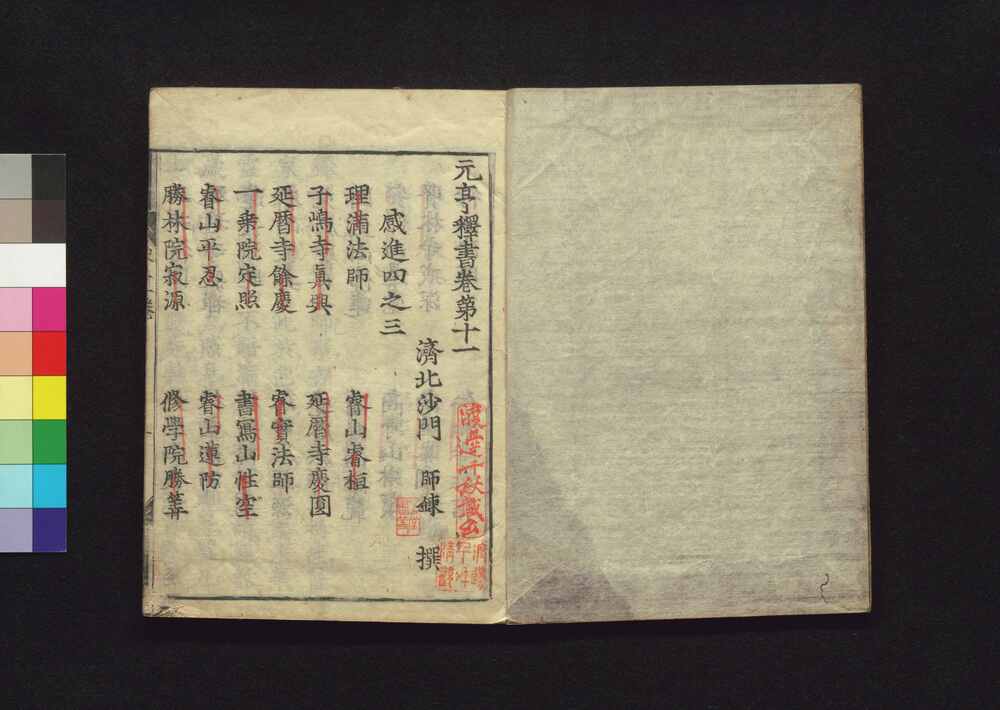 元亨釋書卷第十一
濟北沙門 師錬 撰
感進四之三
理滿法師 睿山睿桓
子嶋寺眞興 延暦寺慶圓
延暦寺餘慶 睿實法師
一乗院定照 書寫山性空
睿山平忍 睿山蓮防
勝林院寂源 修學院勝筭
渡邊千秋藏書